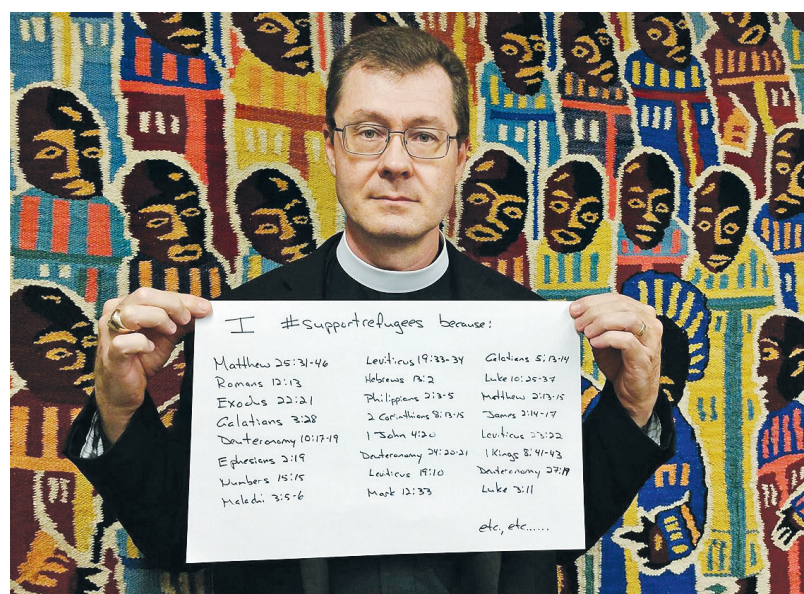 I #supportrefugees because:
Matthew 25:31-46
Romans 12:13
Exodus 22:21
Galatians 3:28
Deuteronomy 10:17-19
Ephesians 2:19
Numbers 15:15
Malachi 3:5-6
Leviticus 19:33-34
Hebrews 13:2
Philippians 2:3-5
2 Corinthians 8:13-15
1 John 4:20
Deuteronomy 24:20-21
Leviticus 19:10
Mark 12:33
Galatians 5:13-14
Luke 10:25-37
Matthew 2:13-15
James 2:14-17
Leviticus 23:22
1 Kings 8:41-43
Deuteronomy 27:19
Luke 3:11
etc., etc......